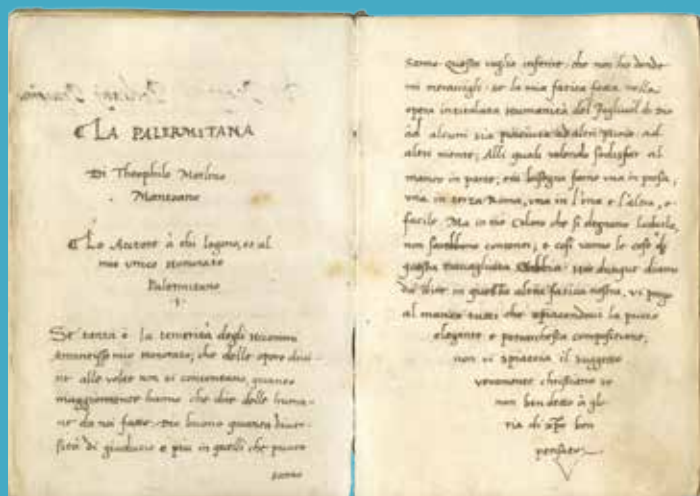 LA PALERMITANA
Di Theophilo
Mantoano
Lo Autore à chi legono, et al
mio unico Honorato
Palermitano
Se tanta è la temerità degli Huomini
mio Honorato; che delle opere divi-
ne alle volte non si contentano, quanto
maggiormente hanno che dire delle huma-
ne da noi fatte. Dio buono quanta diver-
sità di giudicio e più in quelli che puoco
sanno
sanno. Questo voglio inferire. che non ho donde
mi meravigli. se la mia fatica fatta nella
opera intitulata Humanità del Figliuol di Dio
ad alcuni sia piaciuta ad altri puoco. ad
altri niente; Alli quali volendo sodisfar al
manco in parte, bisogna farne una in prosa,
una in terza Rima, una in l'una e l'altra, e
facile. Ma in Coloro che si degnano laudarla,
non sarebbono contenti; e cosi vanno le cose di
questa travagliata dunque diamo
da dire in questa altra fatica nostra, vi prego
al manco tutti che spiacendovi la puoco
elegante e petrarchesca compositione,
non vi spiaccia il suggetto
veramente christiano se
non ben detto à glo
ria di xpo ben
pensato